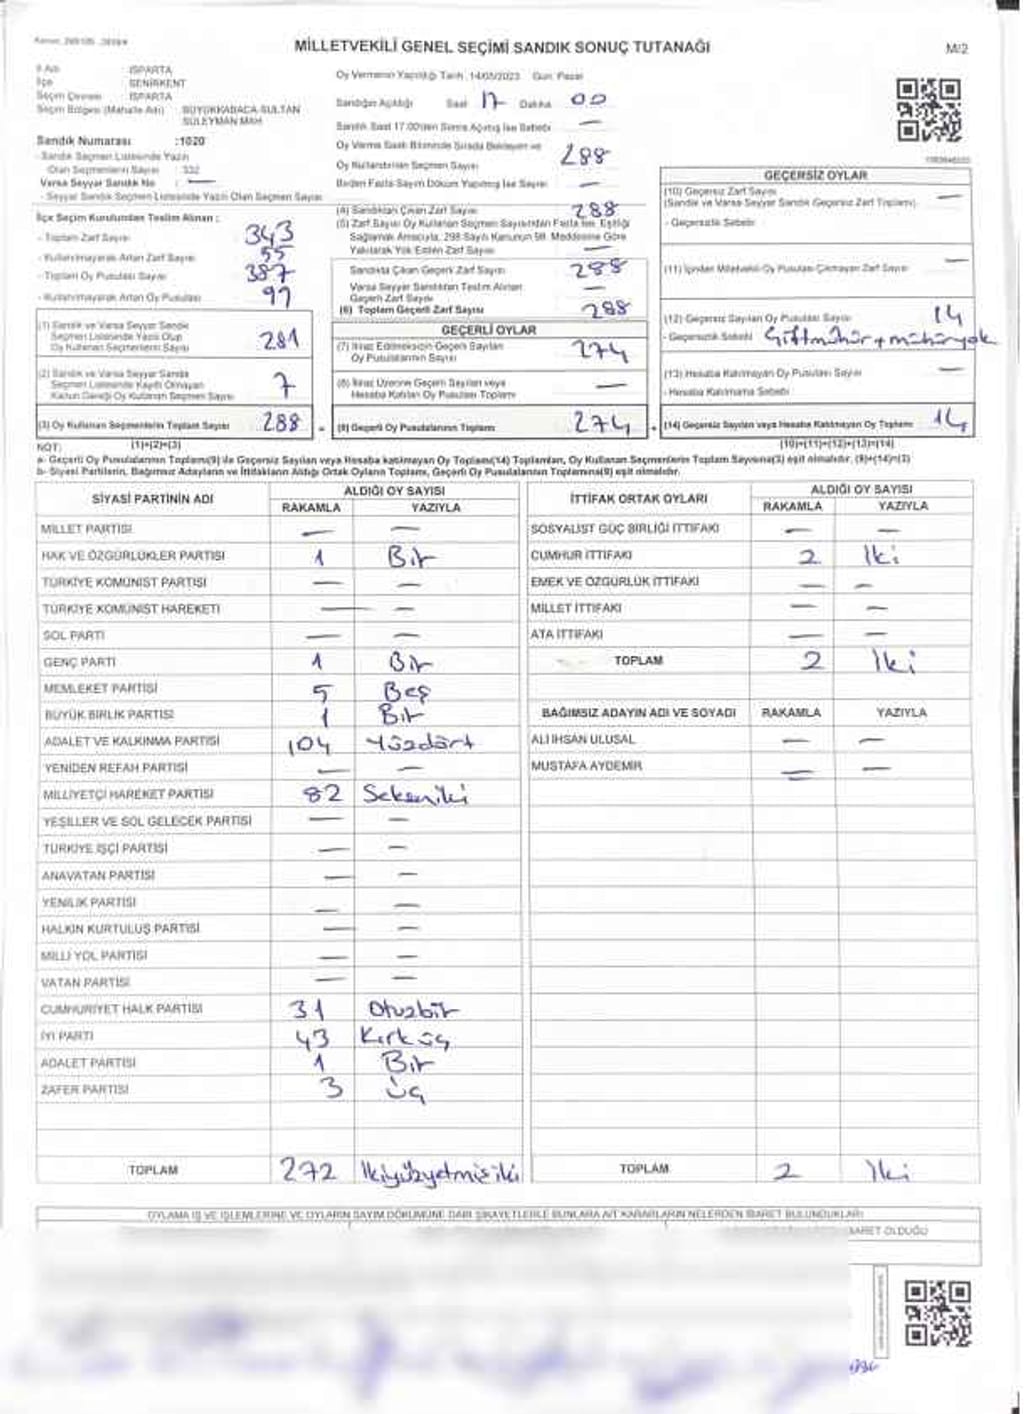 MİLLETVEKİLİ GENEL SEÇİMİ SANDIK SONUÇ TUTANAĞI
M/2
İl Adı : ISPARTA
İlçe : SENİRKENT
Seçim Çevresi : ISPARTA
Seçim Bölgesi (Mahalle Adı) : BÜYÜKKABACA-SULTAN SÜLEYMAN MAH
Sandık Numarası :1020
- Sandık Seçmen Listesinde Yazılı
Olan Seçmenlerin Sayısı : 332
Varsa Seyyar Sandık No : —
- Seyyar Sandık Seçmen Listesinde Yazılı Olan Seçmen Sayısı
Oy Vermenin Yapıldığı Tarih :14/05/2023 Gün: Pazar
Sandığın Açıldığı Saat 17 Dakika 00
Sandık Saat 17.00'den Sonra Açılmış İse Sebebi —
Oy Verme Saati Bitiminde Sırada Bekleyen ve
Oy Kullandırılan Seçmen Sayısı 288
Birden Fazla Sayım Döküm Yapılmış İse Sayısı —
İlçe Seçim Kurulundan Teslim Alınan :
- Toplam Zarf Sayısı 343
- Kullanılmayarak Artan Zarf Sayısı 55
- Toplam Oy Pusulası Sayısı 387
- Kullanılmayarak Artan Oy Pusulası 99
(1) Sandık ve Varsa Seyyar Sandık
Seçmen Listesinde Yazılı Olup
Oy Kullanan Seçmenlerin Sayısı 281
(2) Sandık ve Varsa Seyyar Sandık
Seçmen Listesinde Kayıtlı Olmayan
Kanun Gereği Oy Kullanan Seçmen Sayısı 7
(3) Oy Kullanan Seçmenlerin Toplam Sayısı 288
(1)+(2)=(3)
(4) Sandıktan Çıkan Zarf Sayısı 288
(5) Zarf Sayısı Oy Kullanan Seçmen Sayısından Fazla İse, Eşitliği
Sağlamak Amacıyla, 298 Sayılı Kanunun 98. Maddesine Göre
Yakılarak Yok Edilen Zarf Sayısı —
Sandıkta Çıkan Geçerli Zarf Sayısı 288
Varsa Seyyar Sandıktan Teslim Alınan
Geçerli Zarf Sayısı —
(6) Toplam Geçerli Zarf Sayısı 288
GEÇERLİ OYLAR
(7) İtiraz Edilmeksizin Geçerli Sayılan
Oy Pusulalarının Sayısı 274
(8) İtiraz Üzerine Geçerli Sayılan veya
Hesaba Katılan Oy Pusulası Toplamı —
(9) Geçerli Oy Pusulalarının Toplamı 274
GEÇERSİZ OYLAR
(10) Geçersiz Zarf Sayısı
(Sandık ve Varsa Seyyar Sandık Geçersiz Zarf Toplamı) —
- Geçersizlik Sebebi
(11) İçinden Milletvekili Oy Pusulası Çıkmayan Zarf Sayısı —
(12) Geçersiz Sayılan Oy Pusulası Sayısı 14
- Geçersizlik Sebebi Çiftmühür + mühüryok
(13) Hesaba Katılmayan Oy Pusulası Sayısı —
- Hesaba Katılmama Sebebi
(14) Geçersiz Sayılan veya Hesaba Katılmayan Oy Toplamı 14
(10)+(11)+(12)+(13)=(14)
NOT:
a- Geçerli Oy Pusulalarının Toplamı(9) ile Geçersiz Sayılan veya Hesaba katılmayan Oy Toplamı(14) Toplamları, Oy Kullanan Seçmenlerin Toplam Sayısına(3) eşit olmalıdır. (9)+(14)=(3)
b- Siyasi Partilerin, Bağımsız Adayların ve İttifakların Aldığı Ortak Oyların Toplamı, Geçerli Oy Pusulalarının Toplamına(9) eşit olmalıdır.
SİYASİ PARTİNİN ADI ALDIĞI OY SAYISI
RAKAMLA YAZIYLA
MİLLET PARTİSİ — —
HAK VE ÖZGÜRLÜKLER PARTİSİ 1 Bir
TÜRKİYE KOMÜNİST PARTİSİ — —
TÜRKİYE KOMÜNİST HAREKETİ — —
SOL PARTİ — —
GENÇ PARTİ 1 Bir
MEMLEKET PARTİSİ 5 Beş
BÜYÜK BİRLİK PARTİSİ 1 Bir
ADALET VE KALKINMA PARTİSİ 104 Yüzdört
YENİDEN REFAH PARTİSİ — —
MİLLİYETÇİ HAREKET PARTİSİ 82 Sekseniki
YEŞİLLER VE SOL GELECEK PARTİSİ — —
TÜRKİYE İŞÇİ PARTİSİ — —
ANAVATAN PARTİSİ — —
YENİLİK PARTİSİ — —
HALKIN KURTULUŞ PARTİSİ — —
MİLLİ YOL PARTİSİ — —
VATAN PARTİSİ — —
CUMHURİYET HALK PARTİSİ 31 Otuzbir
İYİ PARTİ 43 Kırküç
ADALET PARTİSİ 1 Bir
ZAFER PARTİSİ 3 Üç
TOPLAM 272 İkiyüzyetmişiki
İTTİFAK ORTAK OYLARI ALDIĞI OY SAYISI
RAKAMLA YAZIYLA
SOSYALİST GÜÇ BİRLİĞİ İTTİFAKI — —
CUMHUR İTTİFAKI 2 İki
EMEK VE ÖZGÜRLÜK İTTİFAKI — —
MİLLET İTTİFAKI — —
ATA İTTİFAKI — —
TOPLAM 2 İki
BAĞIMSIZ ADAYIN ADI VE SOYADI RAKAMLA YAZIYLA
ALİ İHSAN ULUSAL — —
MUSTAFA AYDEMİR — —
TOPLAM 2 İki
OYLAMA İŞ VE İŞLEMLERİNE VE OYLARIN SAYIM DÖKÜMÜNE DAİR ŞİKAYETLERLE BUNLARA AİT KARARLARIN NELERDEN İBARET BULUNDUKLARI
BARET OLDUĞU